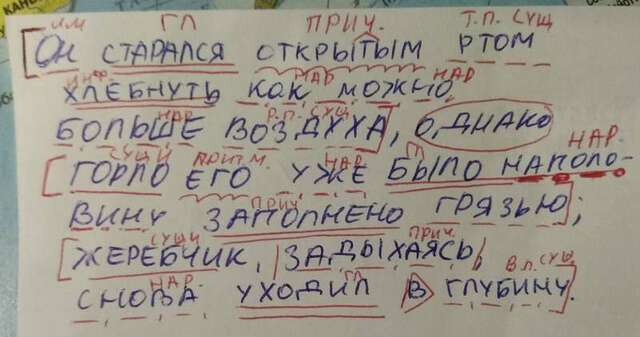 им ГЛ ПРИЧ. Т.П. СУЩ
[ОН СТАРАЛСЯ ОТКРЫТЫМ РТОМ
НАР НАР
ХЛЕБНУТЬ КАК МОЖНО
НАР Р.П. СУЩ
БОЛЬШЕ ВОЗДУХА], ОДНАКО
СУЩ И НАР ГЛ НАР.
[ГОРЛО ЕГО УЖЕ БЫЛО НАПОЛО-
ПРИЧ
ВИНУ ЗАПОЛНЕНО ГРЯЗЬЮ];
СУЩ ПРИЧ.
[ЖЕРЕБЧИК, |ЗАДЫХАЯСЬ|
НАР. ГЛ В.П. СУЩ
СНОВА УХОДИЛ В ГЛУБИНУ].